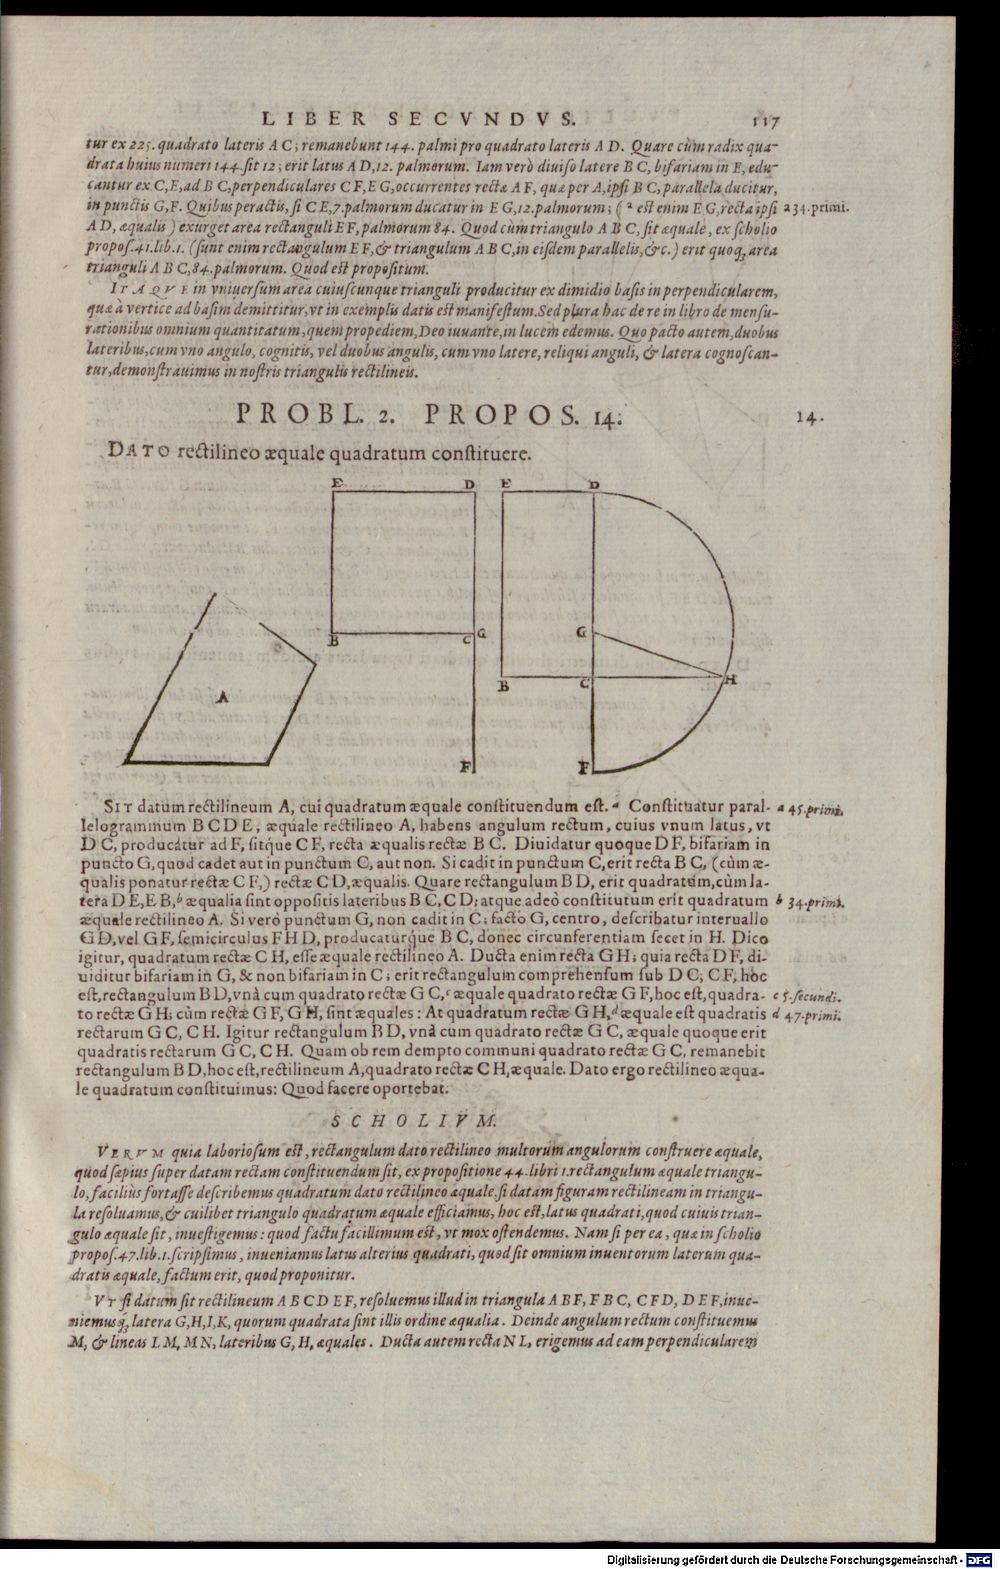 LIBER SECVNDVS. 117
tur ex 225. quadrato lateris A C; remanebunt 144. palmi pro quadrato lateris A D. Quare cùm radix qua-
drata huius numeri 144. ſit 12; erit latus A D, 12. palmorum. Iam verò diuiſo latere B C, bifariam in E, edu-
cantur ex C, E, ad B C, perpendiculares C F, E G, occurrentes rectæ A F, quæ per A, ipſi B C, parallela ducitur,
in punctis G, F. Quibus peractis, ſi C E, 7. palmorum ducatur in E G, 12. palmorum; (ᵃ eſt enim E G, recta ipſi
a 34. primi.
A D, æqualis) exurget area rectanguli E F, palmorum 84. Quod cùm triangulo A B C, ſit æquale, ex ſcholio
propoſ. 41. lib. 1. (ſunt enim rectangulum E F, & triangulum A B C, in eiſdem parallelis, &c.) erit quoq; area
trianguli A B C, 84. palmorum. Quod eſt propoſitum.
ITAQVE in vniuerſum area cuiuſcunque trianguli producitur ex dimidio baſis in perpendicularem,
quæ à vertice ad baſim demittitur, vt in exemplis datis eſt manifeſtum. Sed plura hac de re in libro de menſu-
rationibus omnium quantitatum, quem propediem, Deo iuuante, in lucem edemus. Quo pacto autem, duobus
lateribus, cum vno angulo, cognitis, vel duobus angulis, cum vno latere, reliqui anguli, & latera cognoſcan-
tur, demonſtrauimus in noſtris triangulis rectilineis.
PROBL. 2. PROPOS. 14. 14.
DATO rectilineo æquale quadratum conſtituere.
E D E D
G
B C G
A
B C H
F F
SIT datum rectilineum A, cui quadratum æquale conſtituendum eſt. ᵃ Conſtituatur paral-
a 45. primi.
lelogrammum B C D E, æquale rectilineo A, habens angulum rectum, cuius vnum latus, vt
D C, producatur ad F, ſitq́ue C F, recta æqualis rectæ B C. Diuidatur quoque D F, bifariam in
puncto G, quod cadet aut in punctum C, aut non. Si cadit in punctum C, erit recta B C, (cùm æ-
qualis ponatur rectæ C F,) rectæ C D, æqualis. Quare rectangulum B D, erit quadratum, cùm la-
tera D E, E B, ᵇ æqualia ſint oppoſitis lateribus B C, C D; atque adeò conſtitutum erit quadratum
b 34. primi.
æquale rectilineo A. Si verò punctum G, non cadit in C; facto G, centro, deſcribatur interuallo
G D, vel G F, ſemicirculus F H D, producaturq́ue B C, donec circunferentiam ſecet in H. Dico
igitur, quadratum rectæ C H, eſſe æquale rectilineo A. Ducta enim recta G H; quia recta D F, di-
uiditur bifariam in G, & non bifariam in C; erit rectangulum comprehenſum ſub D C, C F, hoc
eſt, rectangulum B D, vnà cum quadrato rectæ G C, ᶜ æquale quadrato rectæ G F, hoc eſt, quadra-
c 5. ſecundi.
to rectæ G H; cùm rectæ G F, G H, ſint æquales: At quadratum rectæ G H, ᵈ æquale eſt quadratis
d 47. primi.
rectarum G C, C H. Igitur rectangulum B D, vnà cum quadrato rectæ G C, æquale quoque erit
quadratis rectarum G C, C H. Quam ob rem dempto communi quadrato rectæ G C, remanebit
rectangulum B D, hoc eſt, rectilineum A, quadrato rectæ C H, æquale. Dato ergo rectilineo æqua-
le quadratum conſtituimus: Quod facere oportebat.
SCHOLIVM.
VERVM quia laborioſum eſt, rectangulum dato rectilineo multorum angulorum conſtruere æquale,
quod ſæpius ſuper datam rectam conſtituendum ſit, ex propoſitione 44. libri 1. rectangulum æquale triangu-
lo, facilius fortaſſe deſcribemus quadratum dato rectilineo æquale, ſi datam figuram rectilineam in triangu-
la reſoluamus, & cuilibet triangulo quadratum æquale efficiamus, hoc eſt, latus quadrati, quod cuiuis trian-
gulo æquale ſit, inueſtigemus: quod factu facillimum eſt, vt mox oſtendemus. Nam ſi per ea, quæ in ſcholio
propoſ. 47. lib. 1. ſcripſimus, inueniamus latus alterius quadrati, quod ſit omnium inuentorum laterum qua-
dratis æquale, factum erit, quod proponitur.
VT ſi datum ſit rectilineum A B C D E F, reſoluemus illud in triangula A B F, F B C, C F D, D E F, inue-
niemusq́; latera G, H, I, K, quorum quadrata ſint illis ordine æqualia. Deinde angulum rectum conſtituemus
M, & lineas L M, M N, lateribus G, H, æquales. Ducta autem recta N L, erigemus ad eam perpendicularem
Digitalisierung gefördert durch die Deutsche Forschungsgemeinschaft - DFG